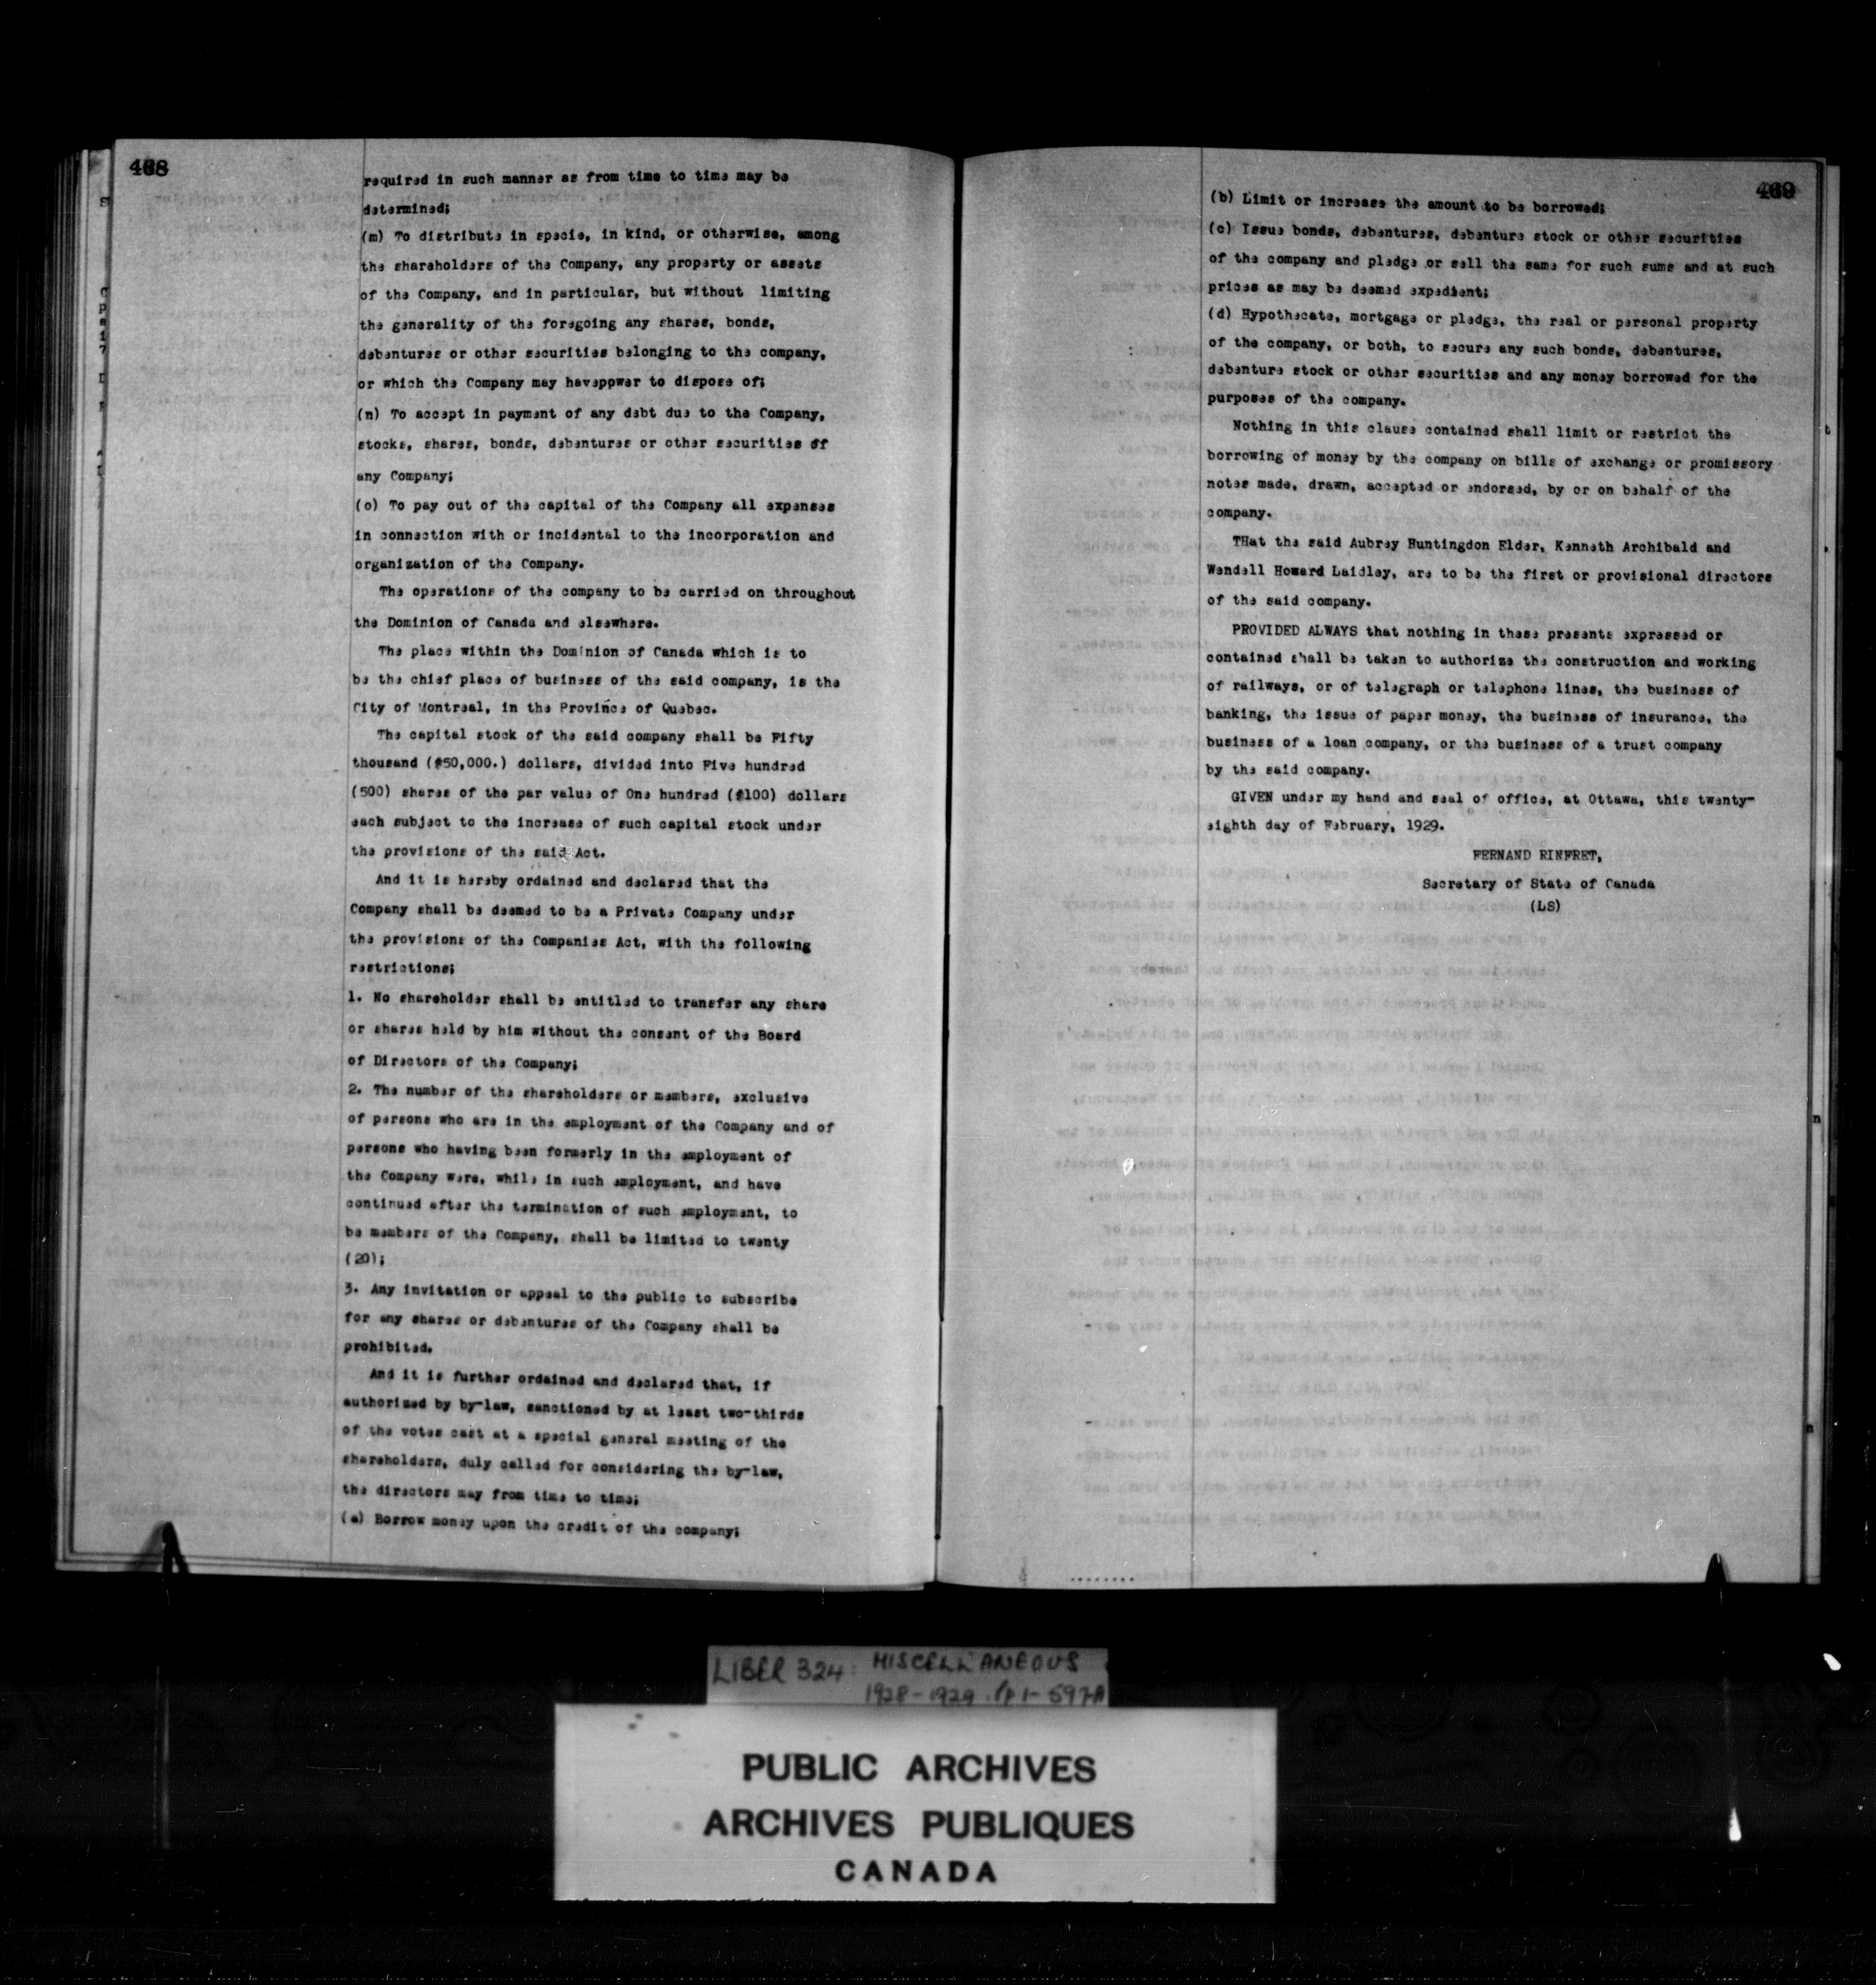 468
required in such manner as from time to time may be
determined;
(m) To distribute in specie, in kind, or otherwise, among
the shareholders of the Company, any property or assets
of the Company, and in particular, but without limiting
the generality of the foregoing any shares, bonds,
debentures or other securities belonging to the company,
or which the Company may havepower to dispose of;
(n) To accept in payment of any debt due to the Company,
stocks, shares, bonds, debentures or other securities of
any Company;
(o) To pay out of the capital of the Company all expenses
in connection with or incidental to the incorporation and
organization of the Company.
The operations of the company to be carried on throughout
the Dominion of Canada and elsewhere.
The place within the Dominion of Canada which is to
be the chief place of business of the said company, is the
City of Montreal, in the Province of Quebec.
The capital stock of the said company shall be Fifty
thousand ($50,000.) dollars, divided into Five hundred
(500) shares of the par value of One hundred ($100) dollars
each subject to the increase of such capital stock under
the provisions of the said Act.
And it is hereby ordained and declared that the
Company shall be deemed to be a Private Company under
the provisions of the Companies Act, with the following
restrictions;
1. No shareholder shall be entitled to transfer any share
or shares held by him without the consent of the Board
of Directors of the Company;
2. The number of the shareholders or members, exclusive
of persons who are in the employment of the Company and of
persons who having been formerly in the employment of
the Company were, while in such employment, and have
continued after the termination of such employment, to
be members of the Company, shall be limited to twenty
(20);
3. Any invitation or appeal to the public to subscribe
for any shares or debentures of the Company shall be
prohibited.
And it is further ordained and declared that, if
authorized by by-law, sanctioned by at least two-thirds
of the votes cast at a special general meeting of the
shareholders, duly called for considering the by-law,
the directors may from time to time;
(a) Borrow money upon the credit of the company;
469
(b) Limit or increase the amount to be borrowed;
(c) Issue bonds, debentures, debenture stock or other securities
of the company and pledge or sell the same for such sums and at such
prices as may be deemed expedient;
(d) Hypothecate, mortgage or pledge, the real or personal property
of the company, or both, to secure any such bonds, debentures,
debenture stock or other securities and any money borrowed for the
purposes of the company.
Nothing in this clause contained shall limit or restrict the
borrowing of money by the company on bills of exchange or promissory
notes made, drawn, accepted or endorsed, by or on behalf of the
company.
THat the said Aubrey Huntingdon Elder, Kenneth Archibald and
Wendell Howard Laidley, are to be the first or provisional directors
of the said company.
PROVIDED ALWAYS that nothing in these presents expressed or
contained shall be taken to authorize the construction and working
of railways, or of telegraph or telephone lines, the business of
banking, the issue of paper money, the business of insurance, the
business of a loan company, or the business of a trust company
by the said company.
GIVEN under my hand and seal of office, at Ottawa, this twenty-
eighth day of February, 1929.
FERNAND RINFRET,
Secretary of State of Canada
(LS)
LIBER 324: MISCELLANEOUS
1928-1929. pp 1-597A
PUBLIC ARCHIVES
ARCHIVES PUBLIQUES
CANADA